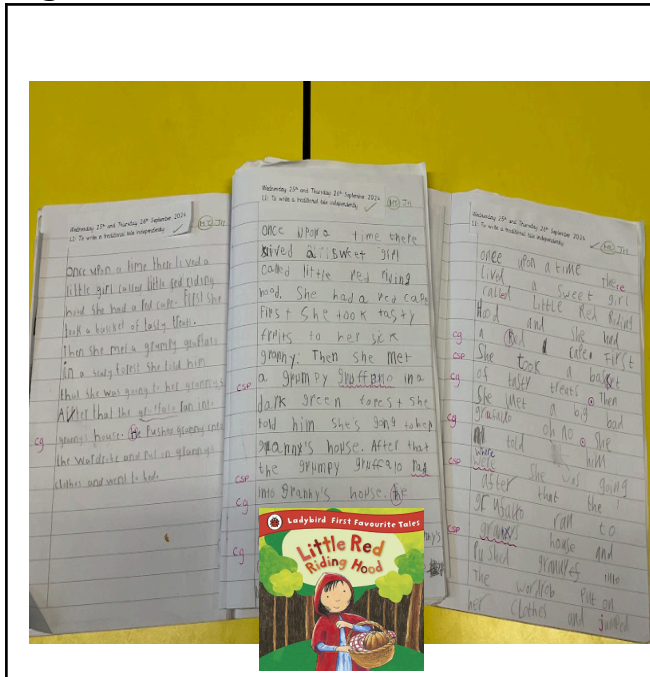 Wednesday 25th and Thursday 26th September 2024
LI: To write a traditional tale independently.
once upon a time ther livd a
little girl called little red riding
hood she had a red cape. First she
took a bucket of tasty treat.
Then she met a grumpy gruffalo
in a scary forest she told him
that she was going to her grannies
After that the gruffalo ran into
granny's house. He Pushed granny into
cg
the wardrobe and put on granny's
clothes and went to bed.
Wednesday 25th and Thursday 26th September 2024
LI: To write a traditional tale independently.
once upon a time there
lived a sweet girl
called little red riding
hood. She had a red cape
First She took tasty
fruits to her sick
granny. Then she met
csp
a grumpy gruffalo in a
dark green forest she
told him she's gong to her
granny's house. After that
csp
the grumpy gruffalo rag
cg
into granny's house. He
cg
Wednesday 25th and Thursday 26th September 2024
LI: To write a traditional tale independently.
once upon a time there
Lived a sweet girl
called Little Red Riding
Hood and she had
cg
a Red cape. First
csp
She took a basket
cg
of tasty treats. Then
She met a big bad
cg
grufallo oh no. She
told him
where
csp
were she was going
after that the
grufallo ran to
csp
house and
Pushed granny into
The wardrob put on
her clothes and jumped
Ladybird First Favourite Tales
Little Red
Riding Hood